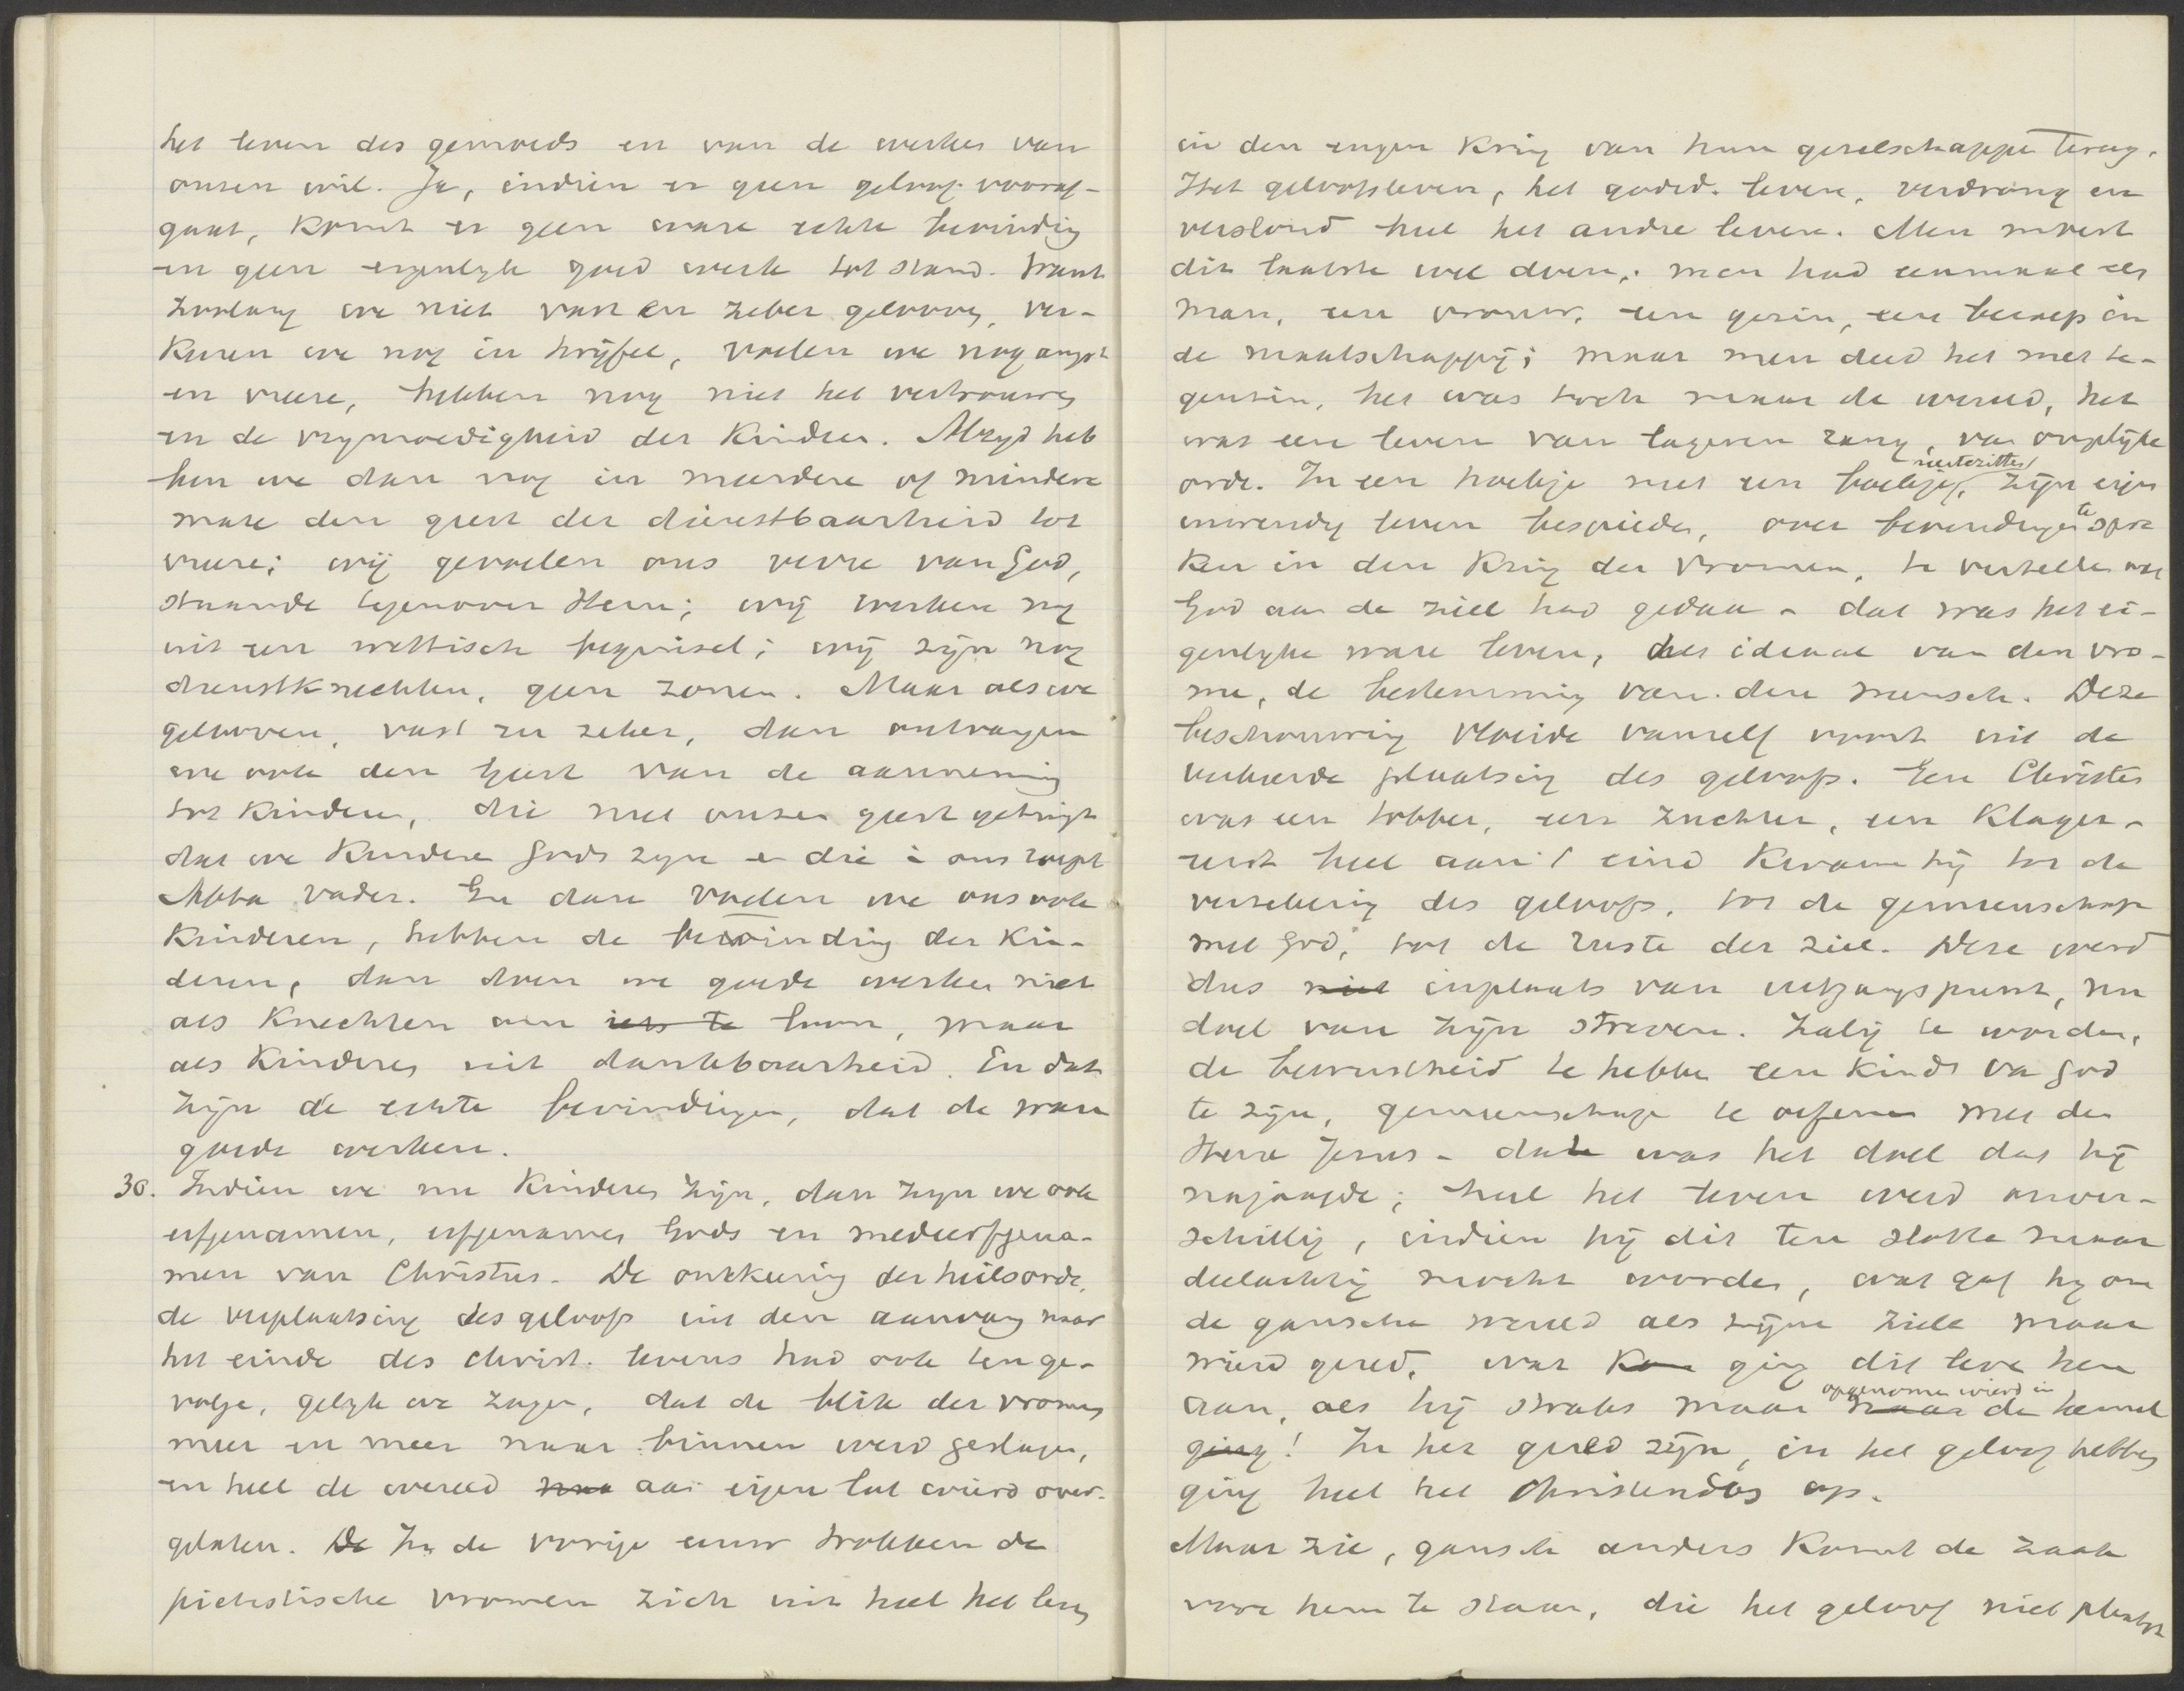 het leven des gemoeds en van de werken van
onzen wil. Ja, indien er geen geloof vooraf-
gaat, komt er geen ware echte bevinding
en geen eigenlyk goed werk tot stand. Want
zoolang we niet vast en zeker gelooven, ver-
keeren we nog in twijfel, voelen we nog angst
en vreeze, hebben nog niet het vertrouwen
en de vrymoedigheid der kinderen. Altyd heb
ben we dan nog in meerdere of mindere
mate den geest der dienstbaarheid tot
vreeze; wij gevoelen ons verre van God,
staande tegenover Hem; wij werken nog
uit een wettisch beginsel; wij zijn nog
dienstknechten, geen zonen. Maar als we
gelooven, vast en zeker, dan ontvangen
we ook den Geest van de aanneming
tot kinderen, die met onzen geest getuigt
dat we kinderen Gods zyn en die in ons roept
Abba Vader. En dan voelen we ons ook
kinderen, hebben de bevinding der kin-
deren, dan doen we goede werken niet
als knechten om iets te loon, maar
als kinderen uit dankbaarheid. En dat
zijn de echte bevindingen, dat de ware
goede werken.
30. Indien we nu kinderen zijn, dan zyn we ook
erfgenamen, erfgenamen Gods en medeerfgena-
men van Christus. De omkeering der heilsorde,
de verplaatsing des geloofs uit den aanvang naar
het einde des christ. levens had ook ten ge-
volge, gelyk we zagen, dat de blik der vromen
meer en meer naar binnen werd geslagen,
en heel de wereld aan eigen lot wierd over-
gelaten. De In de vorige eeuw trokken de
pietistische vromen zich uit heel het leven
in den engen kring van hun gezelschappen terug.
Het geloofsleven, het godsd. leven, verdrong en
verslond heel het andre leven. Men moest
dit laatste wel doen; men had eenmaal als
man, een vrouw, een gezin, een beroep in
de maatschappij; maar men deed het met te-
genzin, het was toch maar de wereld, het
was een leven van lageren rang, van ongelijke
orde. In een hoekje met een boekje neertezitten, zijn eigen
inwendig leven bespieden, over bevindingen te spre
ken in den kring der vromen, te vertellen wat
God aan de ziel had gedaan - dat was het ei-
genlyke ware leven, het ideaal van den vro-
me, de bestemming van den mensch. Deze
beschouwing vloeide vanzelf voort uit de
verkeerde plaatsing des geloofs. Een Christen
was een tobber, een zuchter, een klager -
eerst heel aan 't eind kwam hij tot de
verzekering des geloofs, tot de gemeenschap
met God, tot de ruste der ziel. Deze werd
dus niet inplaats van uitgangspunt, nu
doel van zijn streven. Zalig te worden,
de bewustheid te hebben een kind van God
te zijn, gemeenschap te oefenen met den
Heere Jezus - dat was het doel dat hij
najaagde; heel het leven werd onver-
schillig, indien hij dit ten slotte maar
deelachtig mocht worden, wat gaf hy om
de gansche wereld als zijne ziele maar
wierd gered, wat ging dit leven hem
aan, als hij straks maar opgenomen wierd in naar de hemel
ging! In het gered zijn, in het geloof hebben
ging heel het Christendom op.
Maar zie, gansch anders komt de zaak
voor hem te staan, die het geloof niet plaatst